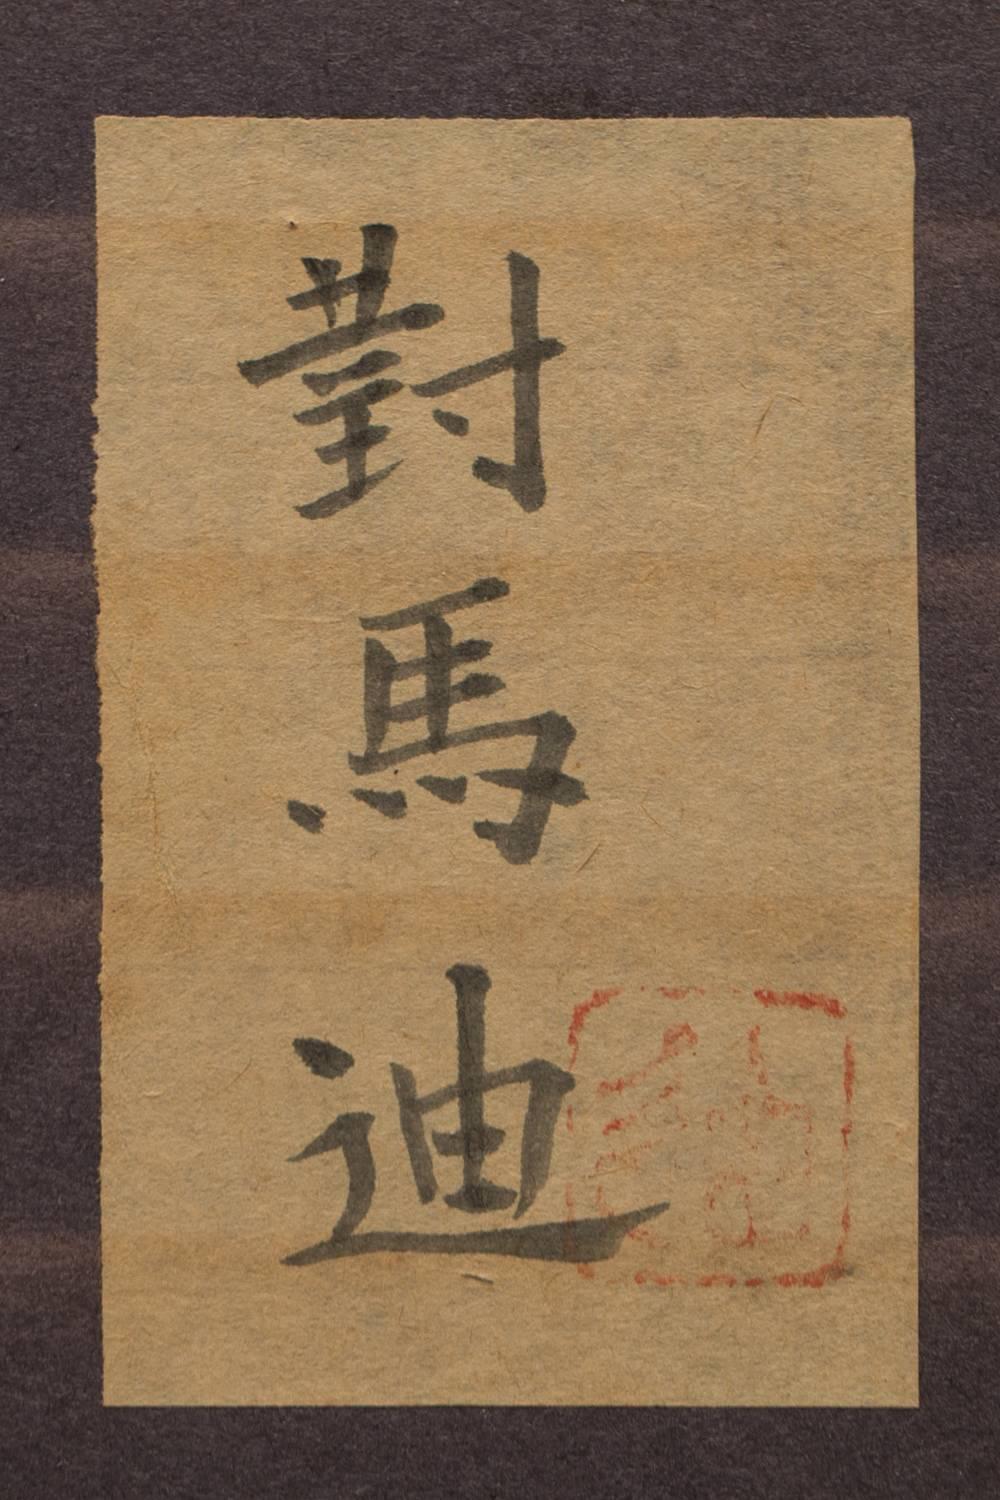 對馬迪